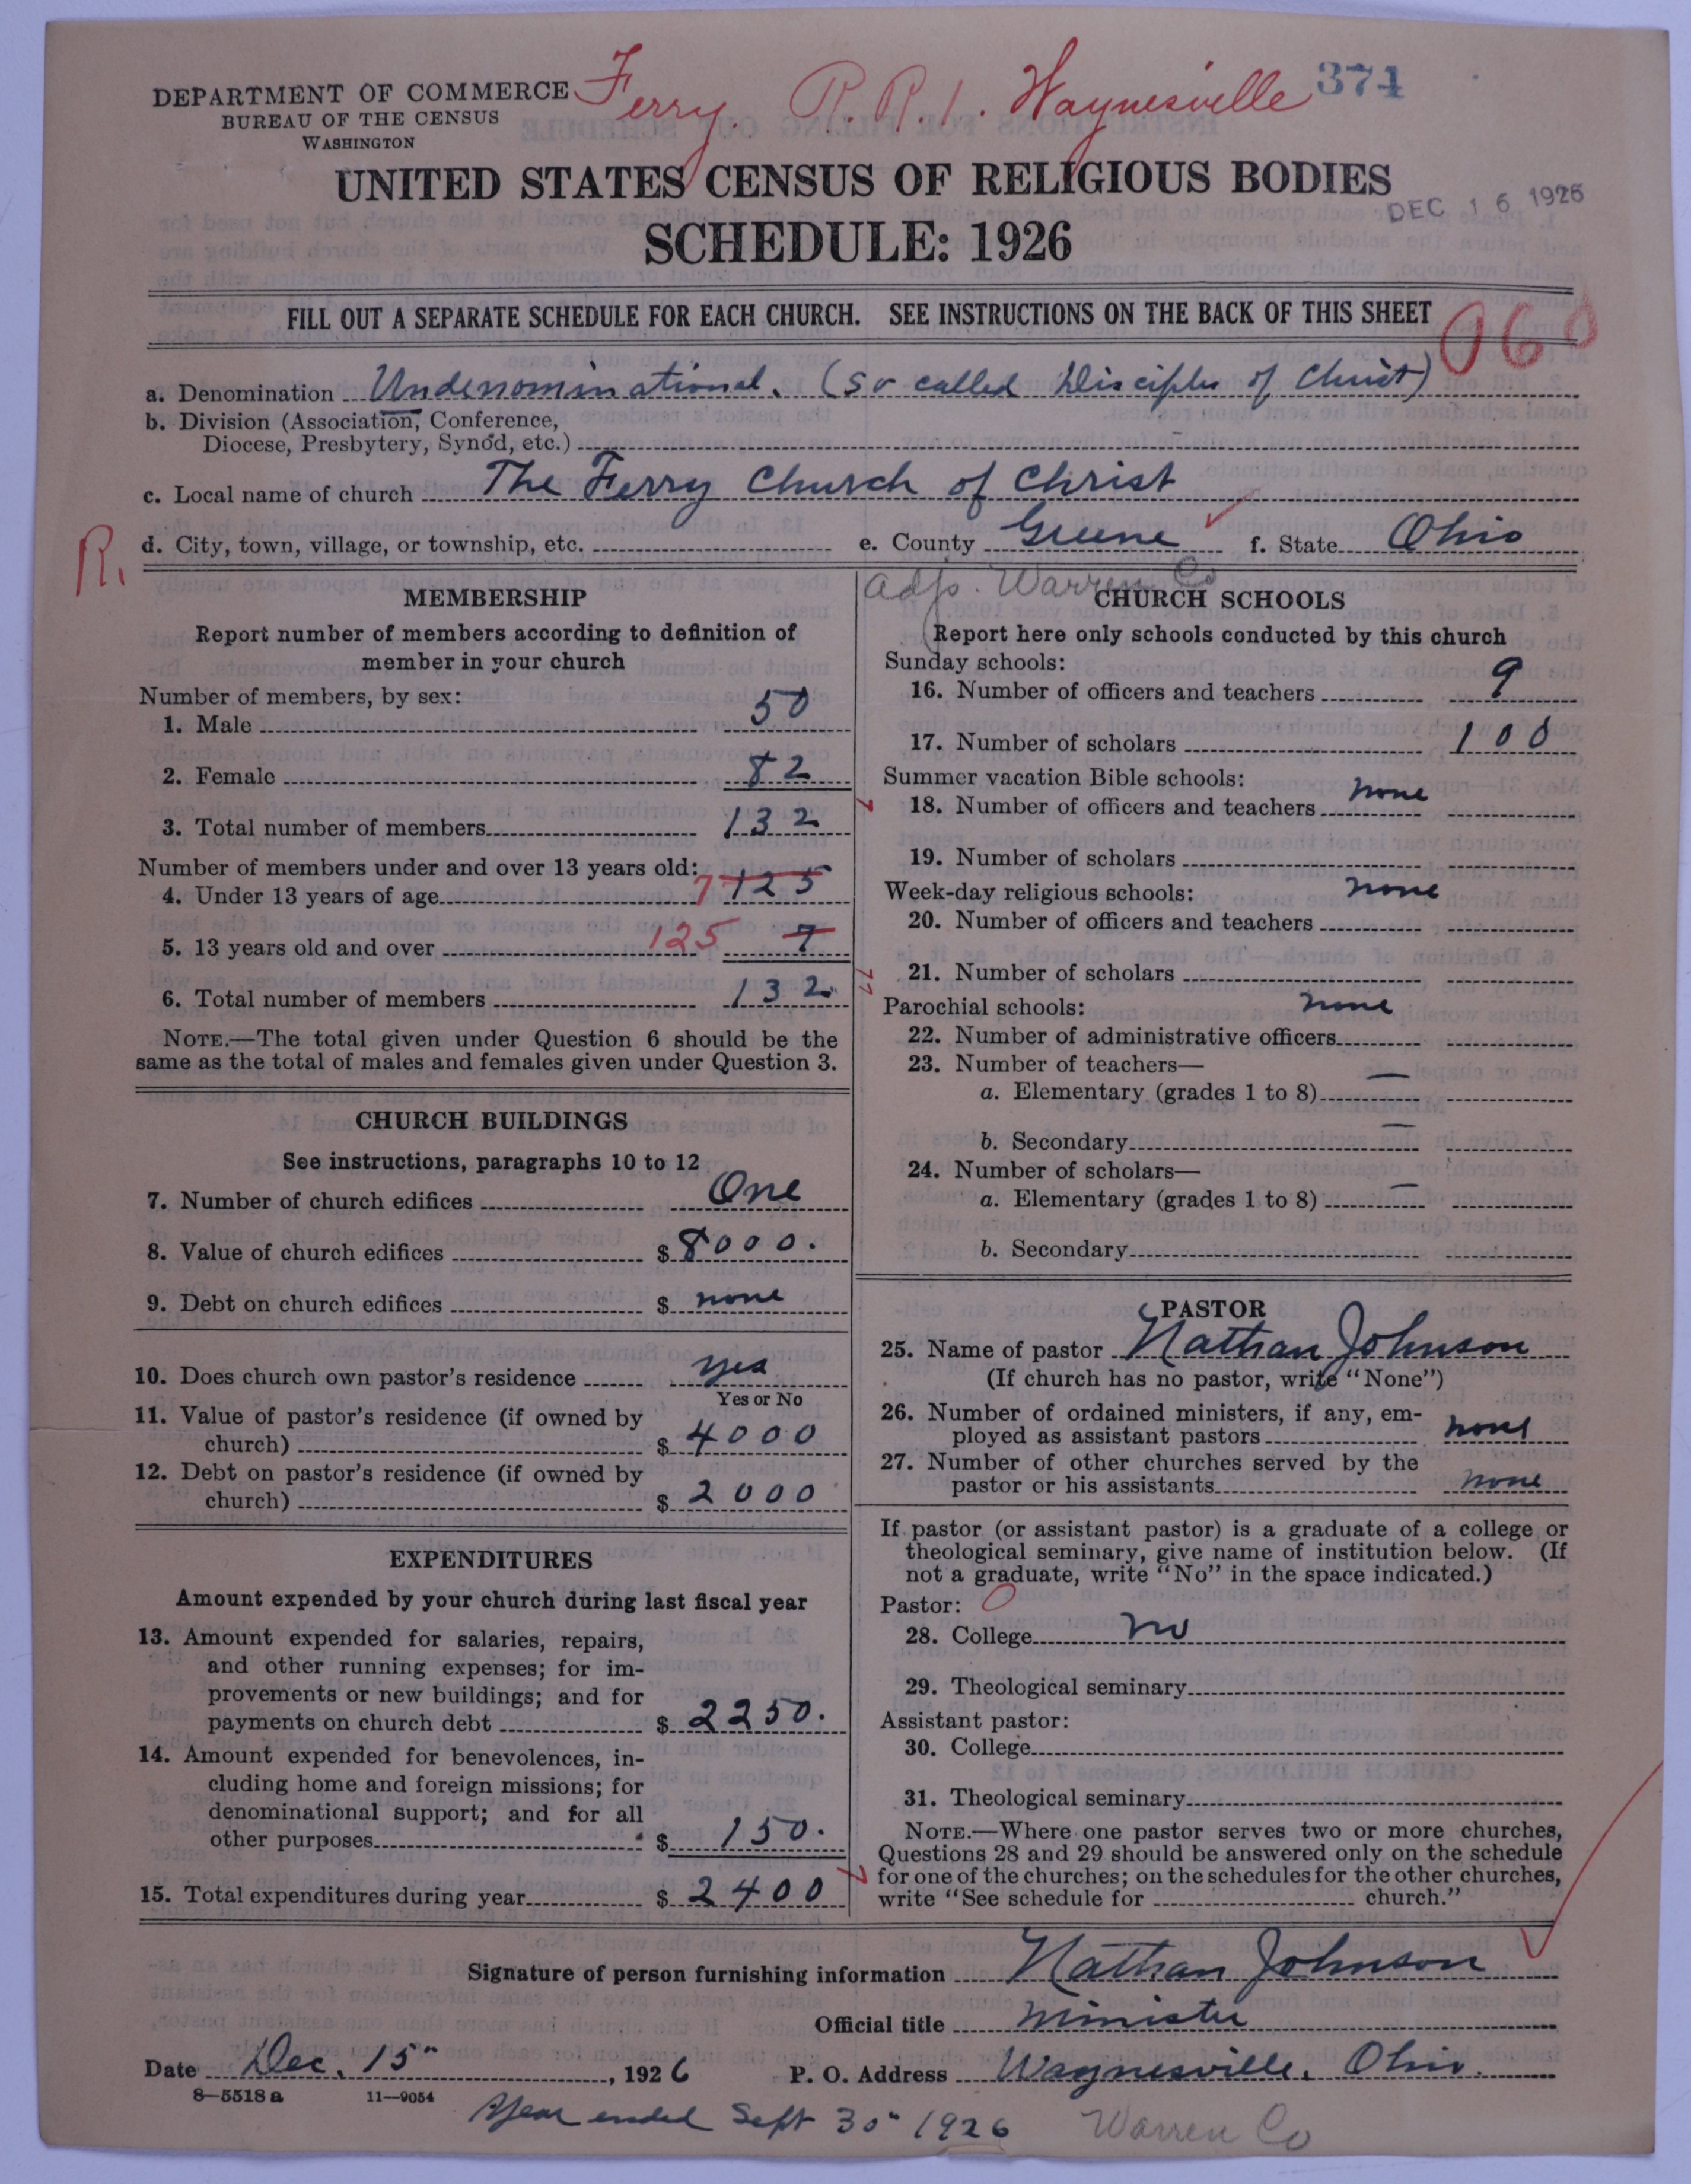 DEPARTMENT OF COMMERCE
BUREAU OF THE CENSUS
WASHINGTON
Ferry. R.R.1. Waynesville
374
UNITED STATES CENSUS OF RELIGIOUS BODIES
DEC 16 1926
SCHEDULE: 1926
FILL OUT A SEPARATE SCHEDULE FOR EACH CHURCH. SEE INSTRUCTIONS ON THE BACK OF THIS SHEET
a. Denomination Undenominational. (so called Disciples of Christ)
b. Division (Association, Conference,
Diocese, Presbytery, Synod, etc.)
c. Local name of church The Ferry Church of Christ
R.
d. City, town, village, or township, etc. e. County Greene f. State Ohio
adjo. Warren Co
MEMBERSHIP
Report number of members according to definition of
member in your church
Number of members, by sex:
1. Male 50
2. Female 82
3. Total number of members 132
Number of members under and over 13 years old:
4. Under 13 years of age 7 125
5. 13 years old and over 125 7
6. Total number of members 132
NOTE.—The total given under Question 6 should be the
same as the total of males and females given under Question 3.
CHURCH BUILDINGS
See instructions, paragraphs 10 to 12
7. Number of church edifices One
8. Value of church edifices $ 8000.
9. Debt on church edifices $ none
10. Does church own pastor's residence yes
Yes or No
11. Value of pastor's residence (if owned by
church) $ 4000
12. Debt on pastor's residence (if owned by
church) $ 2000
EXPENDITURES
Amount expended by your church during last fiscal year
13. Amount expended for salaries, repairs,
and other running expenses; for im-
provements or new buildings; and for
payments on church debt $ 2250.
14. Amount expended for benevolences, in-
cluding home and foreign missions; for
denominational support; and for all
other purposes $ 150.
15. Total expenditures during year $ 2400
CHURCH SCHOOLS
Report here only schools conducted by this church
Sunday schools:
16. Number of officers and teachers 9
17. Number of scholars 100
Summer vacation Bible schools:
18. Number of officers and teachers none
19. Number of scholars
Week-day religious schools: none
20. Number of officers and teachers
21. Number of scholars
Parochial schools: none
22. Number of administrative officers
23. Number of teachers—
a. Elementary (grades 1 to 8) —
b. Secondary —
24. Number of scholars—
a. Elementary (grades 1 to 8) —
b. Secondary
PASTOR
25. Name of pastor Nathan Johnson
(If church has no pastor, write "None")
26. Number of ordained ministers, if any, em-
ployed as assistant pastors none
27. Number of other churches served by the
pastor or his assistants none
If pastor (or assistant pastor) is a graduate of a college or
theological seminary, give name of institution below. (If
not a graduate, write "No" in the space indicated.)
Pastor: 0
28. College no
29. Theological seminary
Assistant pastor:
30. College
31. Theological seminary
NOTE.—Where one pastor serves two or more churches,
Questions 28 and 29 should be answered only on the schedule
for one of the churches; on the schedules for the other churches,
write "See schedule for church."
Signature of person furnishing information Nathan Johnson
Official title Minister
Date Dec. 15", 1926 P. O. Address Waynesville, Ohio.
8—5518 a 11—9054
Year ended Sept 30" 1926 Warren Co